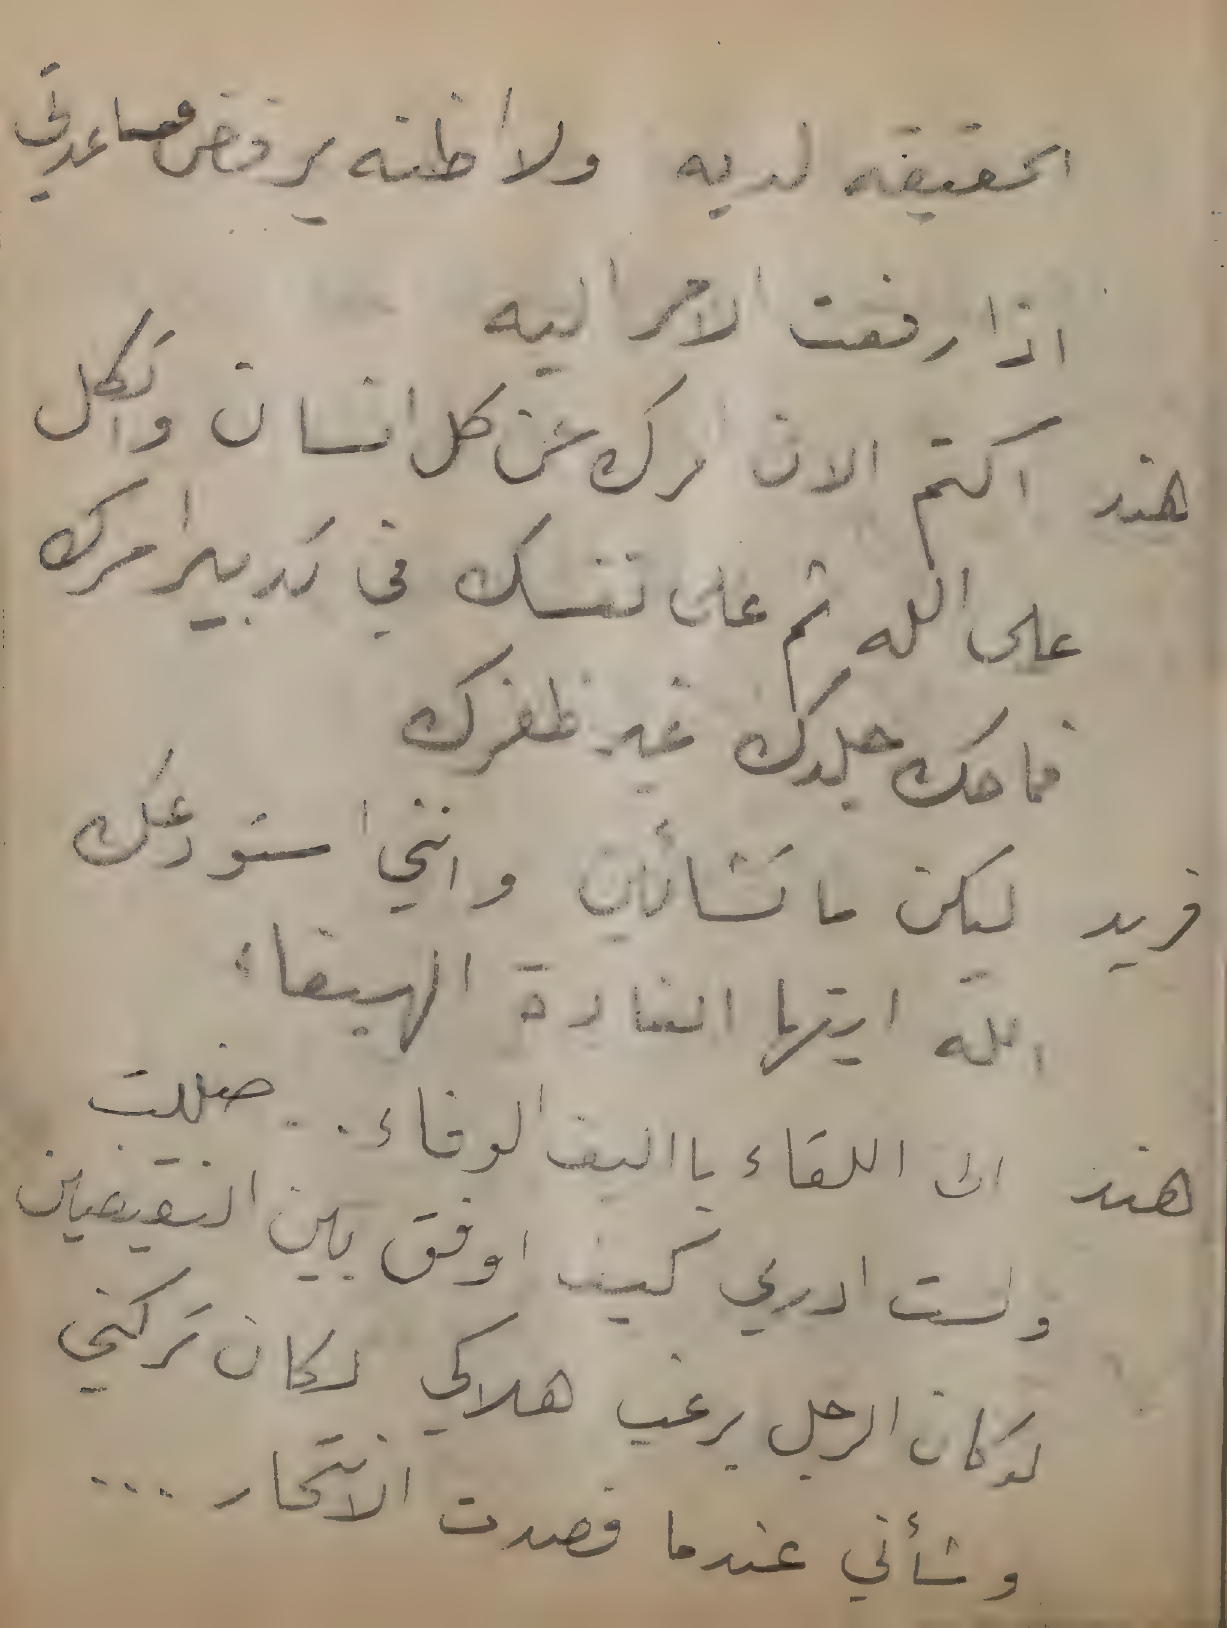 الحقيقه لديه ولا اظنه يرفض مساعدتي
اذا رفعت الامر اليه
هند اكتم الان امرك عن كل انسان واتكل
على الله ثم على نفسك في تدبير امرك
فما حك جلدك غير ظفرك
فريد ليكن ما تشائين وانني استودعك
الله ايتها الغادة الهيفاء
هند الى اللقاء يا اليف الوفاء .. ضللت
ولست ادري كيف اوفق بين النقيضين
لو كان الرجل يرغب هلاكي لكان تركني
وشأني عندما قصدت الانتحار ...